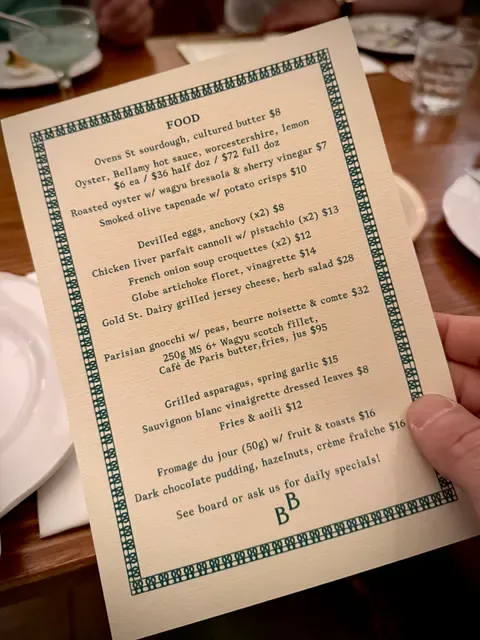 FOOD
Ovens St sourdough, cultured butter $8
Oyster, Bellamy hot sauce, worcestershire, lemon
$6 ea / $36 half doz / $72 full doz
Roasted oyster w/ wagyu bresaola & sherry vinegar $7
Smoked olive tapenade w/ potato crisps $10
Devilled eggs, anchovy (x2) $8
Chicken liver parfait cannoli w/ pistachio (x2) $13
French onion soup croquettes (x2) $12
Globe artichoke floret, vinagrette $14
Gold St. Dairy grilled jersey cheese, herb salad $28
Parisian gnocchi w/ peas, beurre noisette & comte $32
250g MS 6+ Wagyu scotch fillet,
Cafè de Paris butter,fries, jus $95
Grilled asparagus, spring garlic $15
Sauvignon blanc vinaigrette dressed leaves $8
Fries & aoili $12
Fromage du jour (50g) w/ fruit & toasts $16
Dark chocolate pudding, hazelnuts, crème fraîche $16
See board or ask us for daily specials!
BB